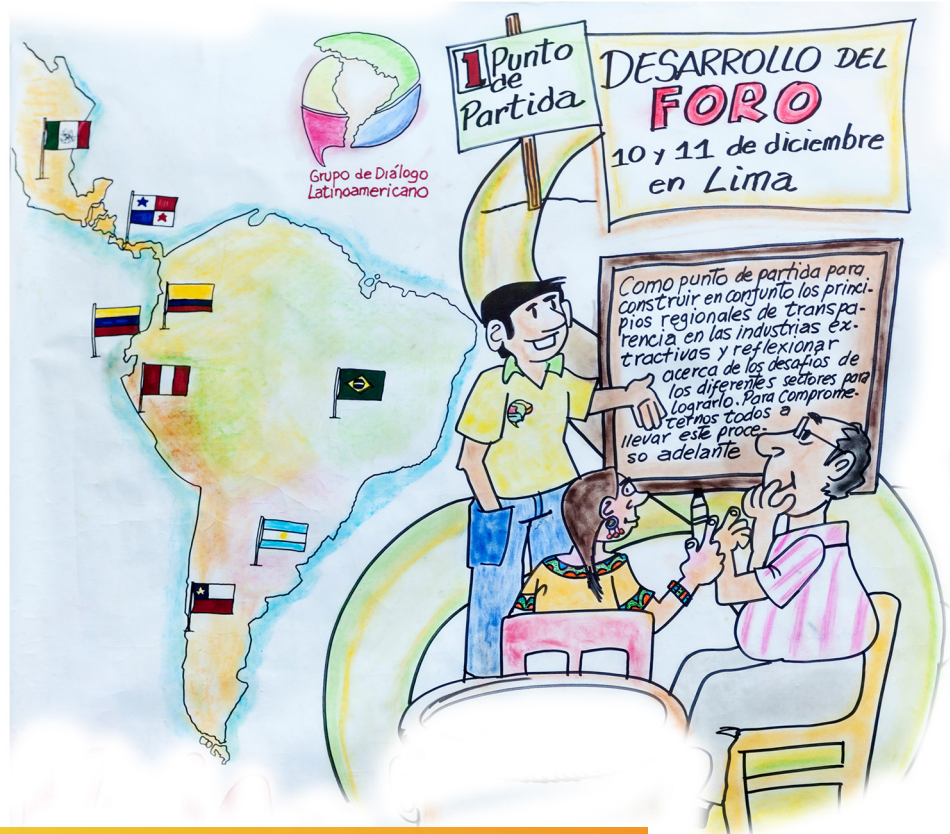 1 Punto
de
Partida
DESARROLLO DEL
FORO
10 y 11 de diciembre
en Lima
Grupo de Diálogo
Latinoamericano
Como punto de partida para
construir en conjunto los princi-
pios regionales de transpa-
rencia en las industrias ex-
tractivas y reflexionar
acerca de los desafíos de
los diferentes sectores para
lograrlo. Para comprome-
ternos todos a
llevar este proce-
so adelante